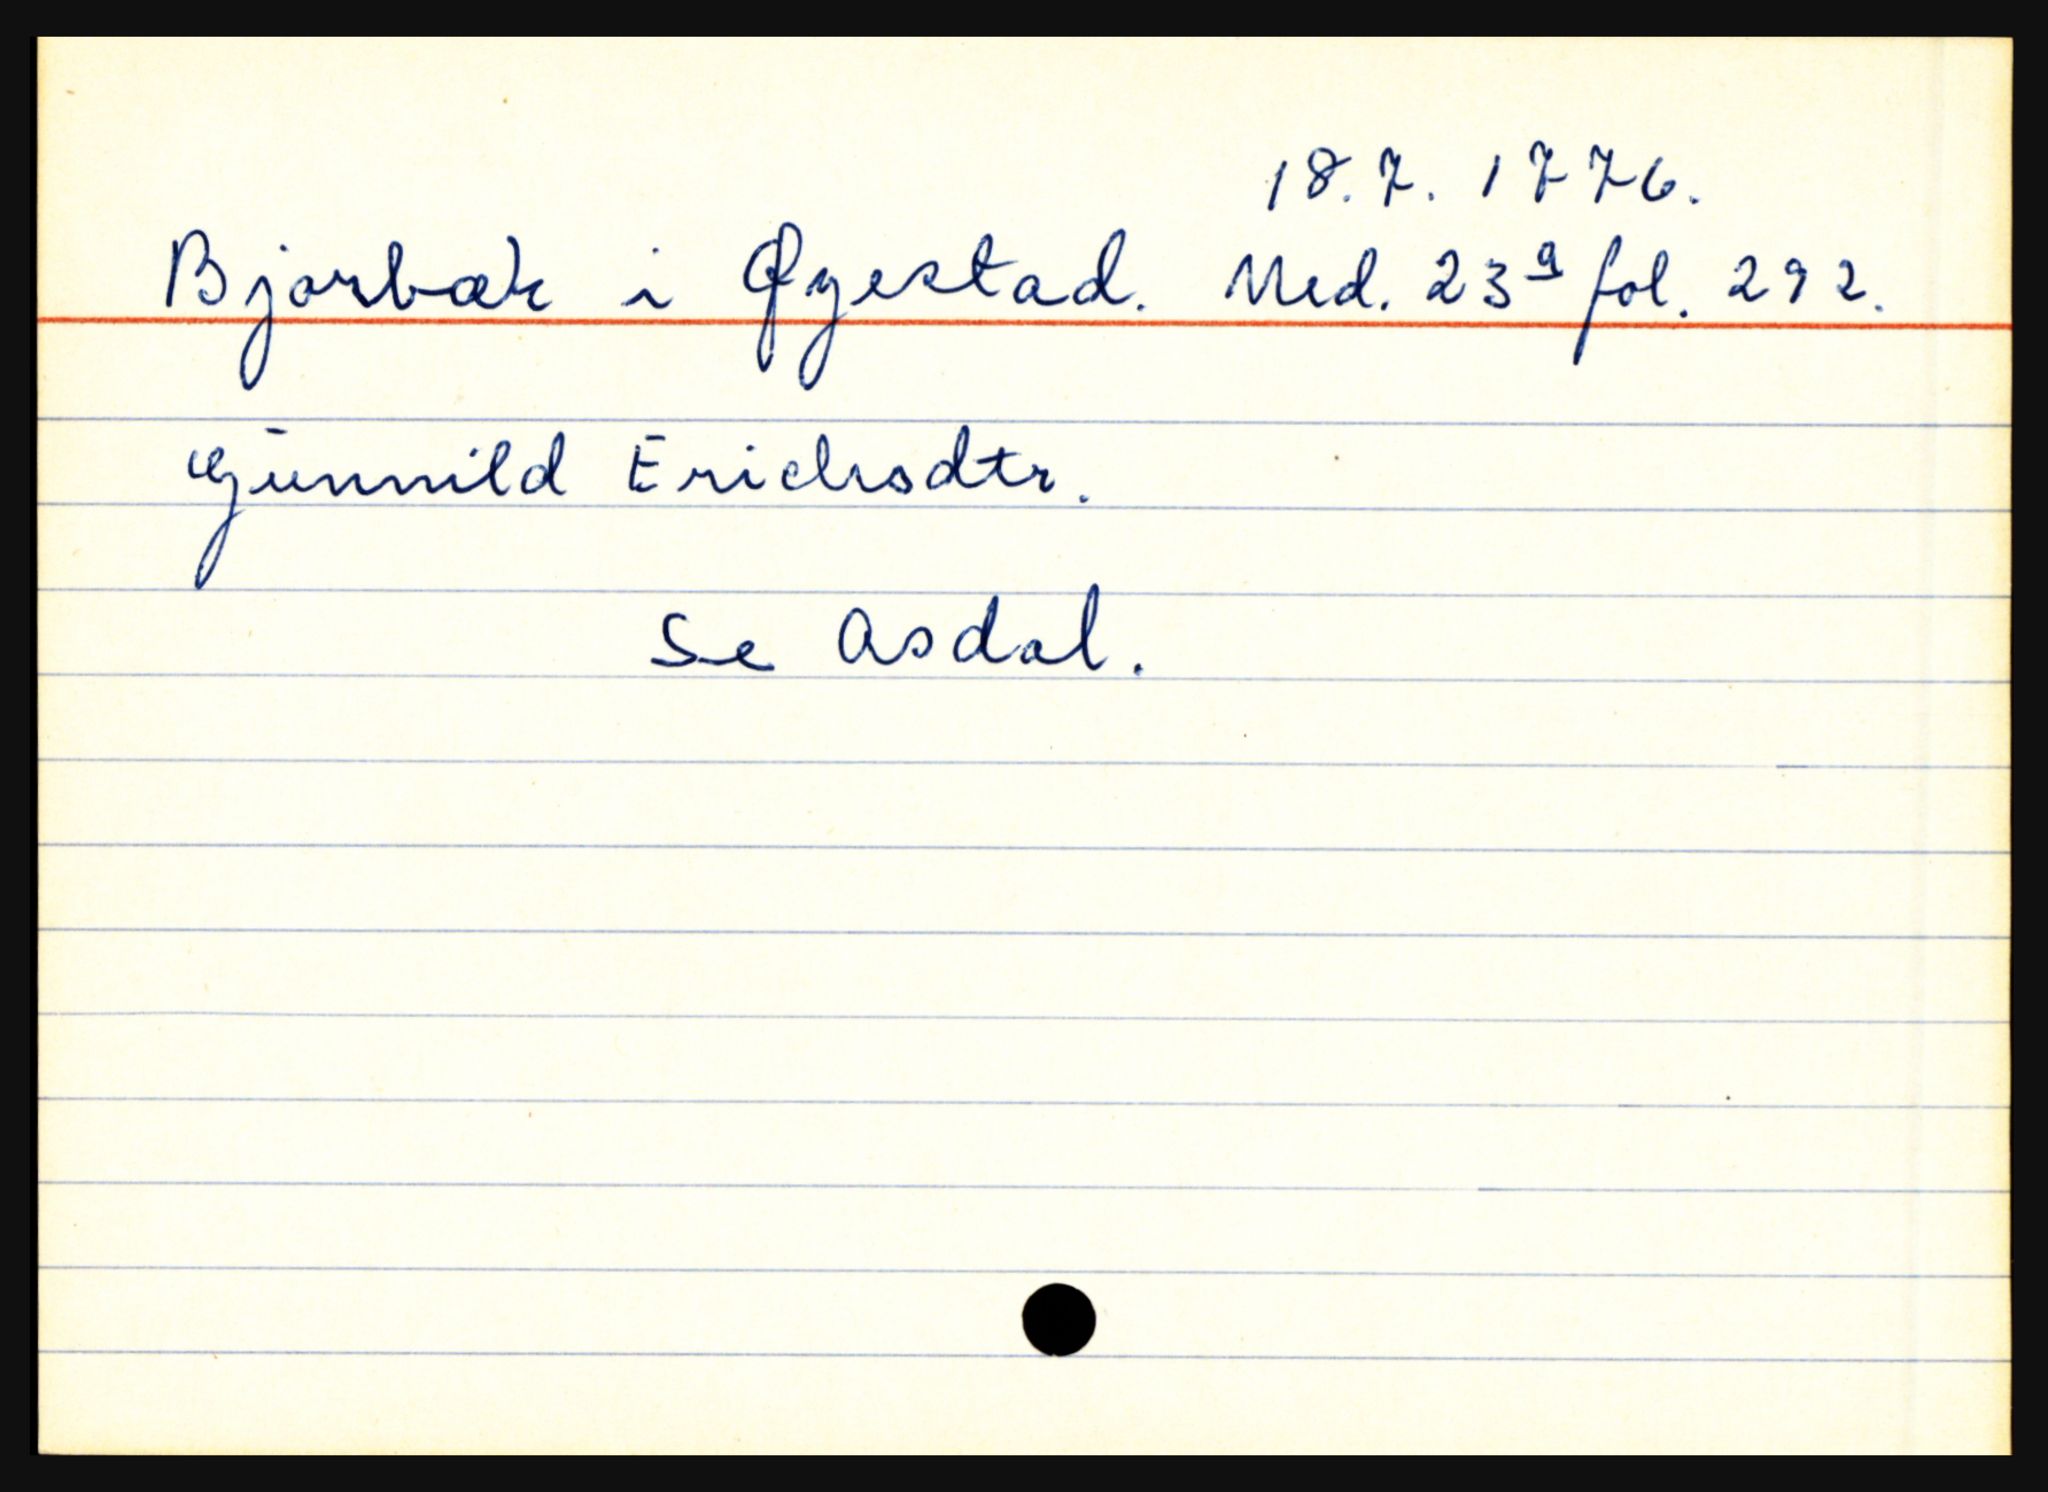 18.7. 1776.
Bjorbæk i Øyestad. Ned. 23⁹ fol. 292.
Gunnild Erichsdtr.
Se Asdal.